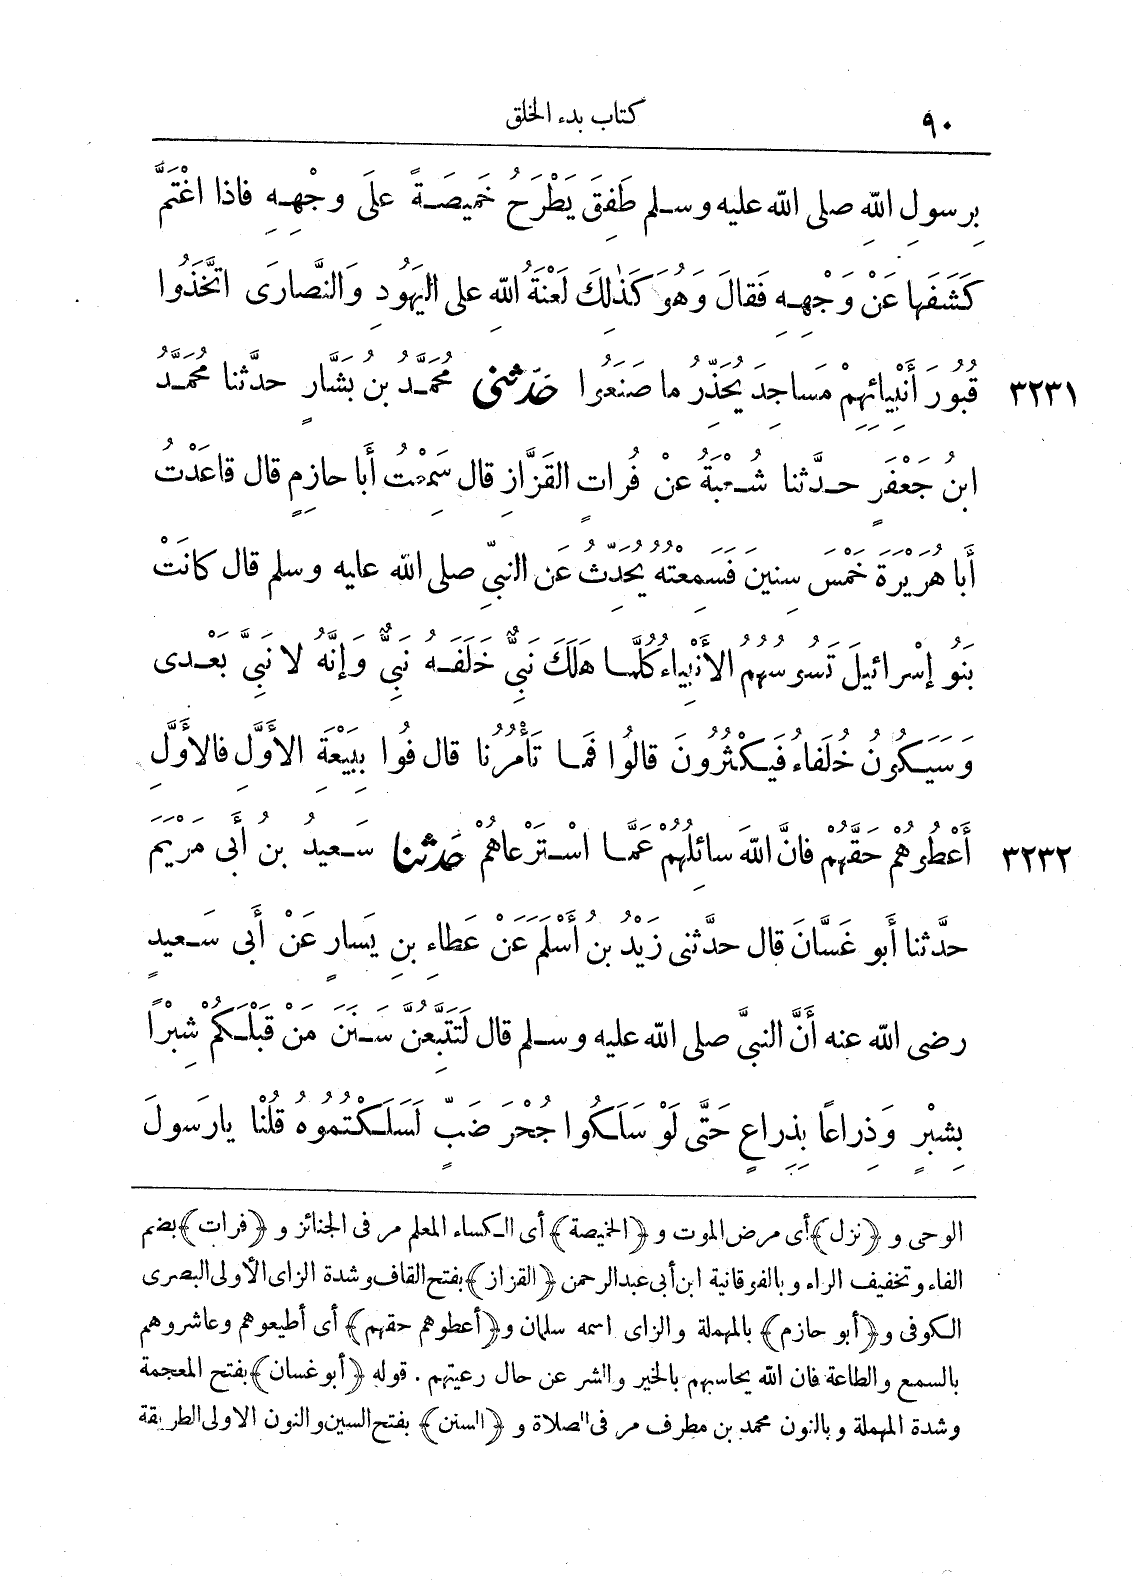 ٩٠ كتاب بدء الخلق
بِرسولِ اللهِ صلى الله عليه وسلم طَفِقَ يَطْرَحُ خَمِيصَةً علَى وجْهِهِ فاذا اغْتَمَّ
كَشَفَها عَنْ وَجْهِهِ فَقالَ وَهُوَ كَذٰلِكَ لَعْنَةُ اللهِ على اليَهُودِ وَالنَّصارَى اتَّخَذُوا
٣٢٣١ قُبُورَ أَنْبِيائِهِمْ مَساجِدَ يُحَذِّرُ ما صَنَعُوا حَدّثني مُحَمَّدُ بن بُشَّارٍ حدَّثنا مُحَمَّدُ
ابنُ جَعْفَرٍ حدَّثنا شُعْبَةُ عنْ فُراتٍ القَزَّازِ قال سَمِعْتُ أَبا حازِمٍ قال قاعَدْتُ
أَبا هُرَيْرَةَ خَمْسَ سِنِينَ فَسَمِعْتُهُ يُحَدِّثُ عَن النبيِّ صلى الله عليه وسلم قال كانَتْ
بَنُو إسْرائيلَ تَسُوسُهُمُ الأَنْبِياءُ كُلَّما هَلَكَ نَبِيٌّ خَلَفَهُ نَبِيٌّ وَإِنَّهُ لا نَبِيَّ بَعْدى
وَسَيَكُونُ خُلَفاءُ فَيَكْثُرُونَ قالُوا فَما تَأْمُرُنا قال فُوا بِبَيْعَةِ الأَوَّلِ فالأَوَّلِ
٣٢٣٢ أَعْطُوهُمْ حَقَّهُمْ فانَّ اللهَ سائِلُهُمْ عَمَّا اسْتَرْعاهُمْ حَدّثنا سَعيدُ بنُ أَبى مَرْيَمَ
حدَّثنا أَبو غَسَّانَ قال حدَّثنى زَيْدُ بن أَسْلَمَ عَنْ عَطَاءِ بنِ يَسارٍ عَنْ أَبى سَعيدٍ
رضى الله عنه أَنَّ النبيَّ صلى الله عليه وسلم قال لَتَتَّبِعُنَّ سَنَنَ مَنْ قَبْلَكُمْ شِبْرًا
بِشِبْرٍ وَذِراعًا بِذِراعٍ حَتَّى لَوْ سَلَكُوا جُحْرَ ضَبٍّ لَسَلَكْتُمُوهُ قُلْنا يارَسولَ
الوحى و (نزل) أى مرض الموت و (الخميصة) أى الكساء المعلم مر فى الجنائز و (فرات) بضم
الفاء وتخفيف الراء وبالفوقانية ابن أبى عبد الرحمن (القزاز) بفتح القاف وشدة الزاى الأولى البصرى
الكوفى و (أبو حازم) بالمهملة والزاى اسمه سلمان و (أعطوهم حقهم) أى أطيعوهم وعاشروهم
بالسمع والطاعة فان الله يحاسبهم بالخير والشر عن حال رعيتهم . قوله (أبو غسان) بفتح المعجمة
وشدة المهملة وبالنون محمد بن مطرف مر فى الصلاة و (السنن) بفتح السين والنون الاولى الطريقة